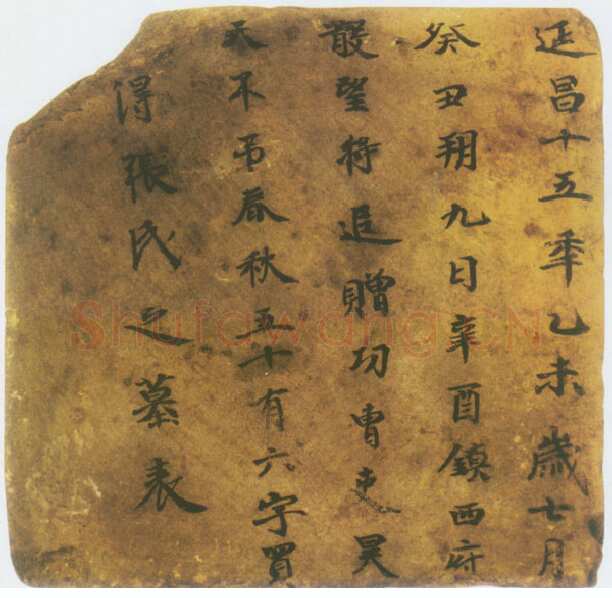 延昌十五年乙未歲七月
癸丑朔九日辛酉鎮西府
散望将追贈功曹吏昊
天不弔春秋五十有六字買
得張氏之墓表
Shufawang.CN